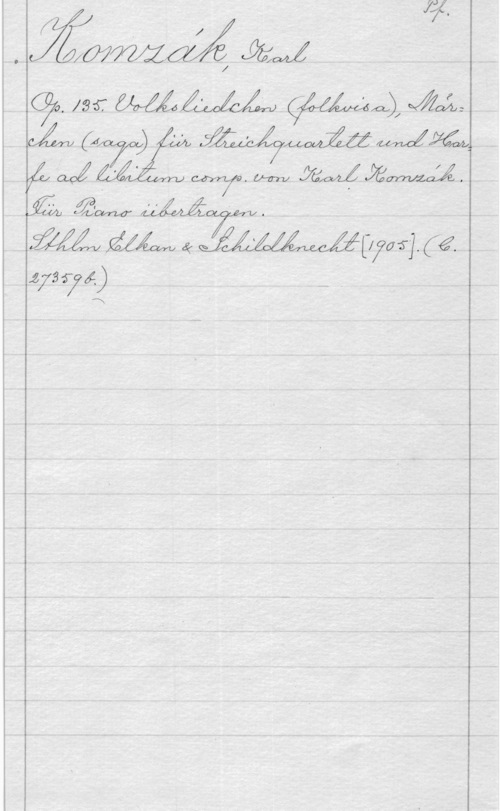 Pf.
Komzák, Karl
Op. 135. Volksliedchen (folkvisa), Mär-
chen (saga) für Streichquartett und Har-
fe ad libitum comp. von Karl Komzák.
Für Piano übertragen.
Sthlm Elkan & Schildknecht [1905]. (C.
27359b.)